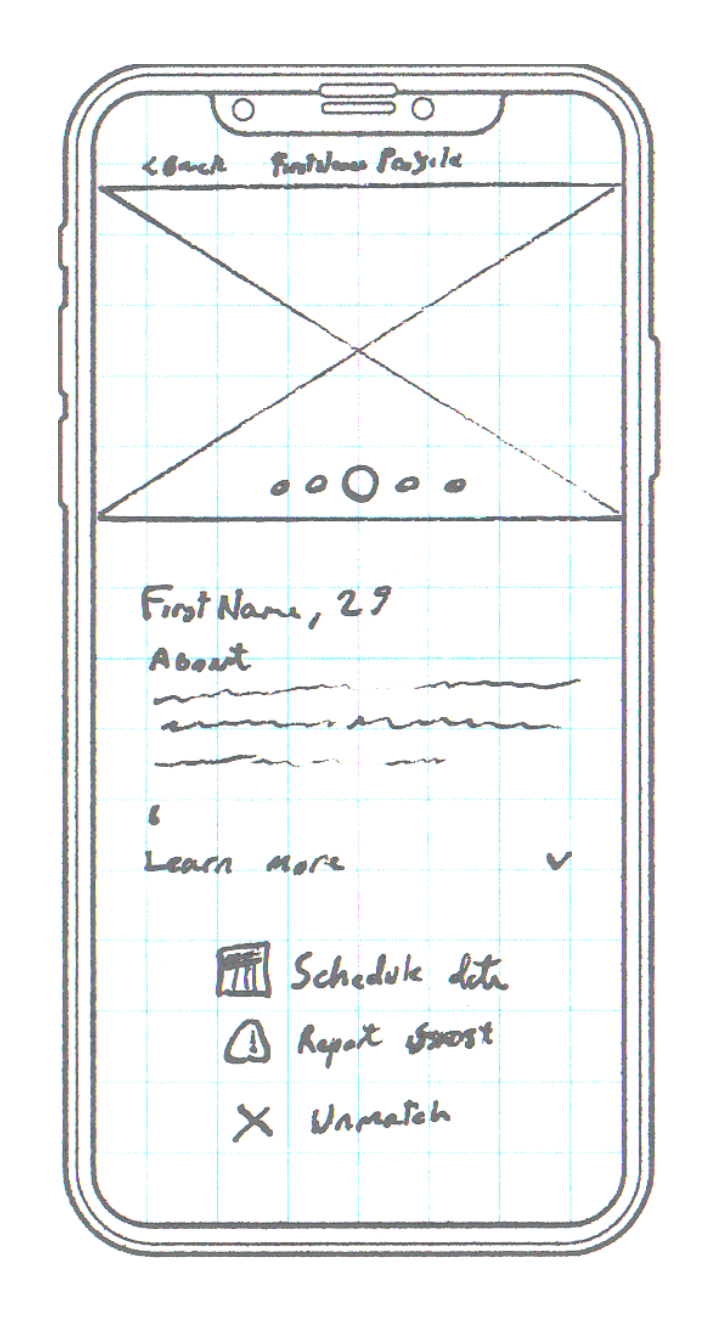 < Back FirstName Profile
FirstName, 29
About
Learn more
Schedule date
Report
Unmatch